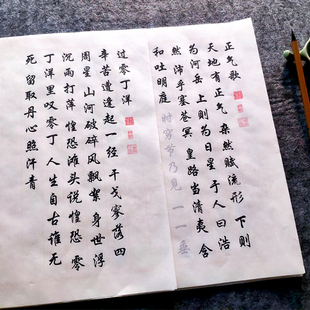 正气歌
天地有正气 杂然赋流形 下则
为河岳 上则为日星 于人曰浩
然 沛乎塞苍冥 皇路当清夷 含
和吐明庭 时穷节乃见 一一垂
过零丁洋
辛苦遭逢起一经 干戈寥落四
周星 山河破碎风飘絮 身世浮
沉雨打萍 惶恐滩头说惶恐 零
丁洋里叹零丁 人生自古谁无
死 留取丹心照汗青